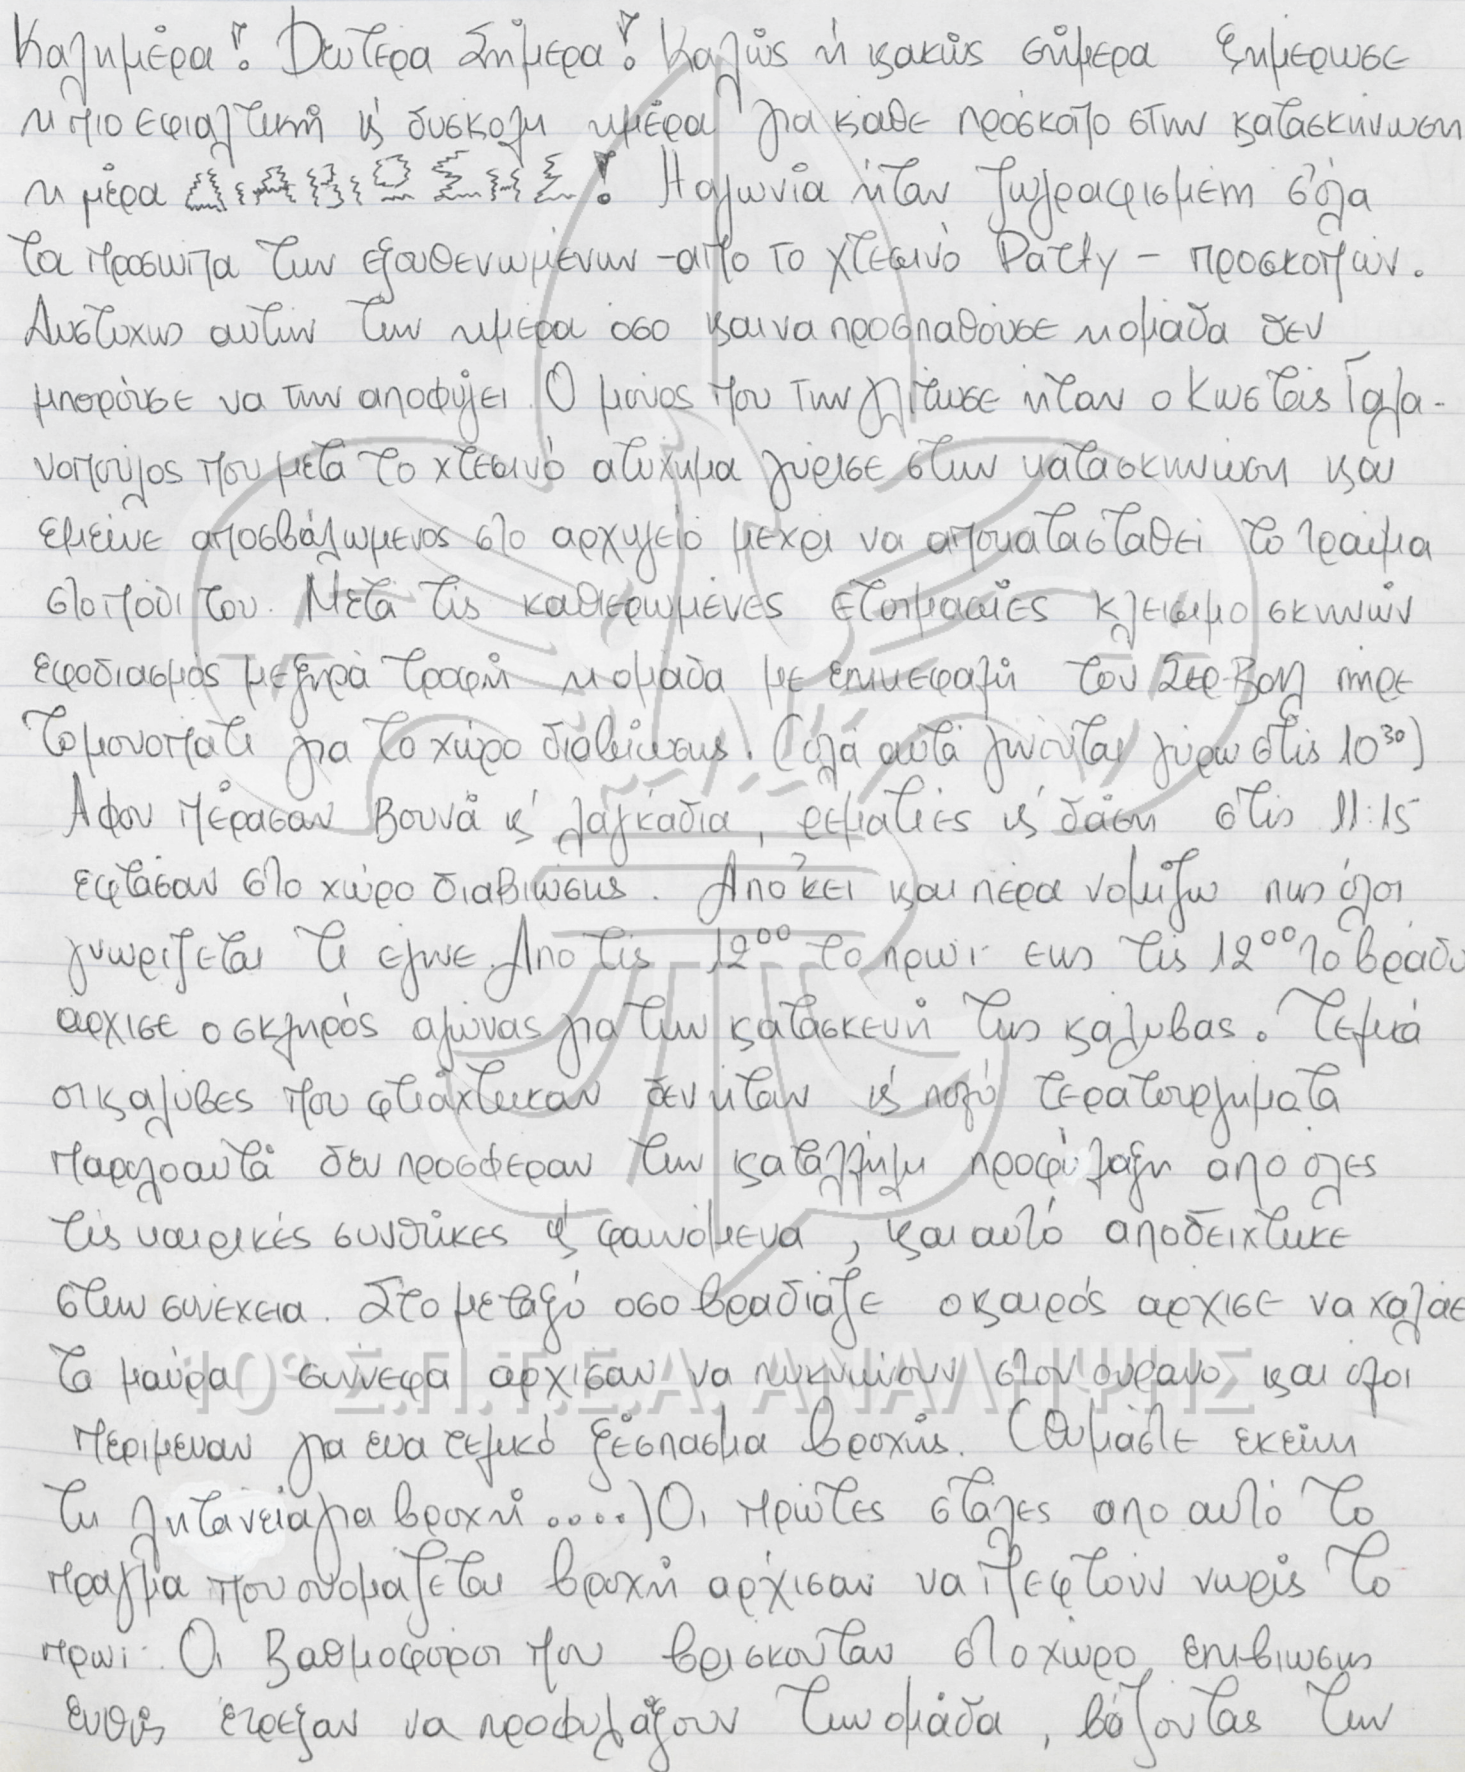 Καλημέρα! Δευτέρα Σήμερα! Καλώς ή κακώς σήμερα ξημέρωσε
η πιο εφιαλτική κ' δύσκολη ημέρα για κάθε πρόσκοπο στην κατασκήνωση
η μέρα ΔΙΑΒΙΩΣΗΣ! Η αγωνία ήταν ζωγραφισμένη σ' όλα
τα πρόσωπα των εξουθενωμένων -απο το χτεσινό Party - προσκόπων.
Δυστυχώς αυτήν την ημέρα όσο και να προσπαθούσε η ομάδα δεν
μπορούσε να την αποφύγει. Ο μόνος που την γλίτωσε ήταν ο Κωστάς Γαλα-
νοπούλος που μετά το χτεσινό ατύχημα γύρισε στην κατασκήνωση και
εμεινε αποσβολωμενος στο αρχηγείο μέχρι να αποκατασταθεί το τραύμα
στο πόδι του. Μετά τις καθιερωμένες ετοιμασίες κλεισιμο σκηνών
εφοδιασμός με ξηρά τροφή η ομάδα με επικεφαλή τον Σερ-Βολ πήρε
το μονοπάτι για το χώρο διαβίωσης. (όλα αυτά γινόνται γύρω στις 10³⁰)
Αφου πέρασαν βουνά κ' λαγκάδια, ρεματιές κ' δάση στις 11:15
εφτάσαν στο χώρο διαβιώσης. Απο 'κει και πέρα νομίζω πως όλοι
γνωρίζεται τι έγινε. Απο τις 12⁰⁰ το πρωϊ εως τις 12⁰⁰ το βράδυ
άρχισε ο σκληρός αγώνας για την κατασκευή της καλυβας. Τελικά
οι καλύβες που φτιάχτηκαν δεν ήταν κ' πολύ τερατουργήματα
παρολοαυτά δεν προσφεραν την καταλληλη προφύλαξη απο όλες
τις καιρικές συνθήκες κ' φαινόμενα, και αυτό αποδειχτηκε
στην συνέχεια. Στο μεταξύ οσο βραδιάζε ο καιρός αρχισε να χαλάε
Τα μαύρα συννεφα αρχισαν να πυκνώνουν στον ουρανο και όλοι
περιμεναν για ενα τελικό ξέσπασμα βροχής. (Θυμάστε εκείνη
τη λητανεία για βροχή ....) Οι πρώτες στάλες απο αυτό το
πραγμα που ονομαζεται βροχή αρχισαν να πεφτούν νωρίς το
πρωι. Οι βαθμοφοροι που βρισκονταν στο χώρο επιβιωσης
ευθύς έτρεξαν να προφυλάξουν την ομάδα, βάζοντας την
10° Σ.Π.Τ.Ε.Α. ΑΝΑΛΗΨΗΣ